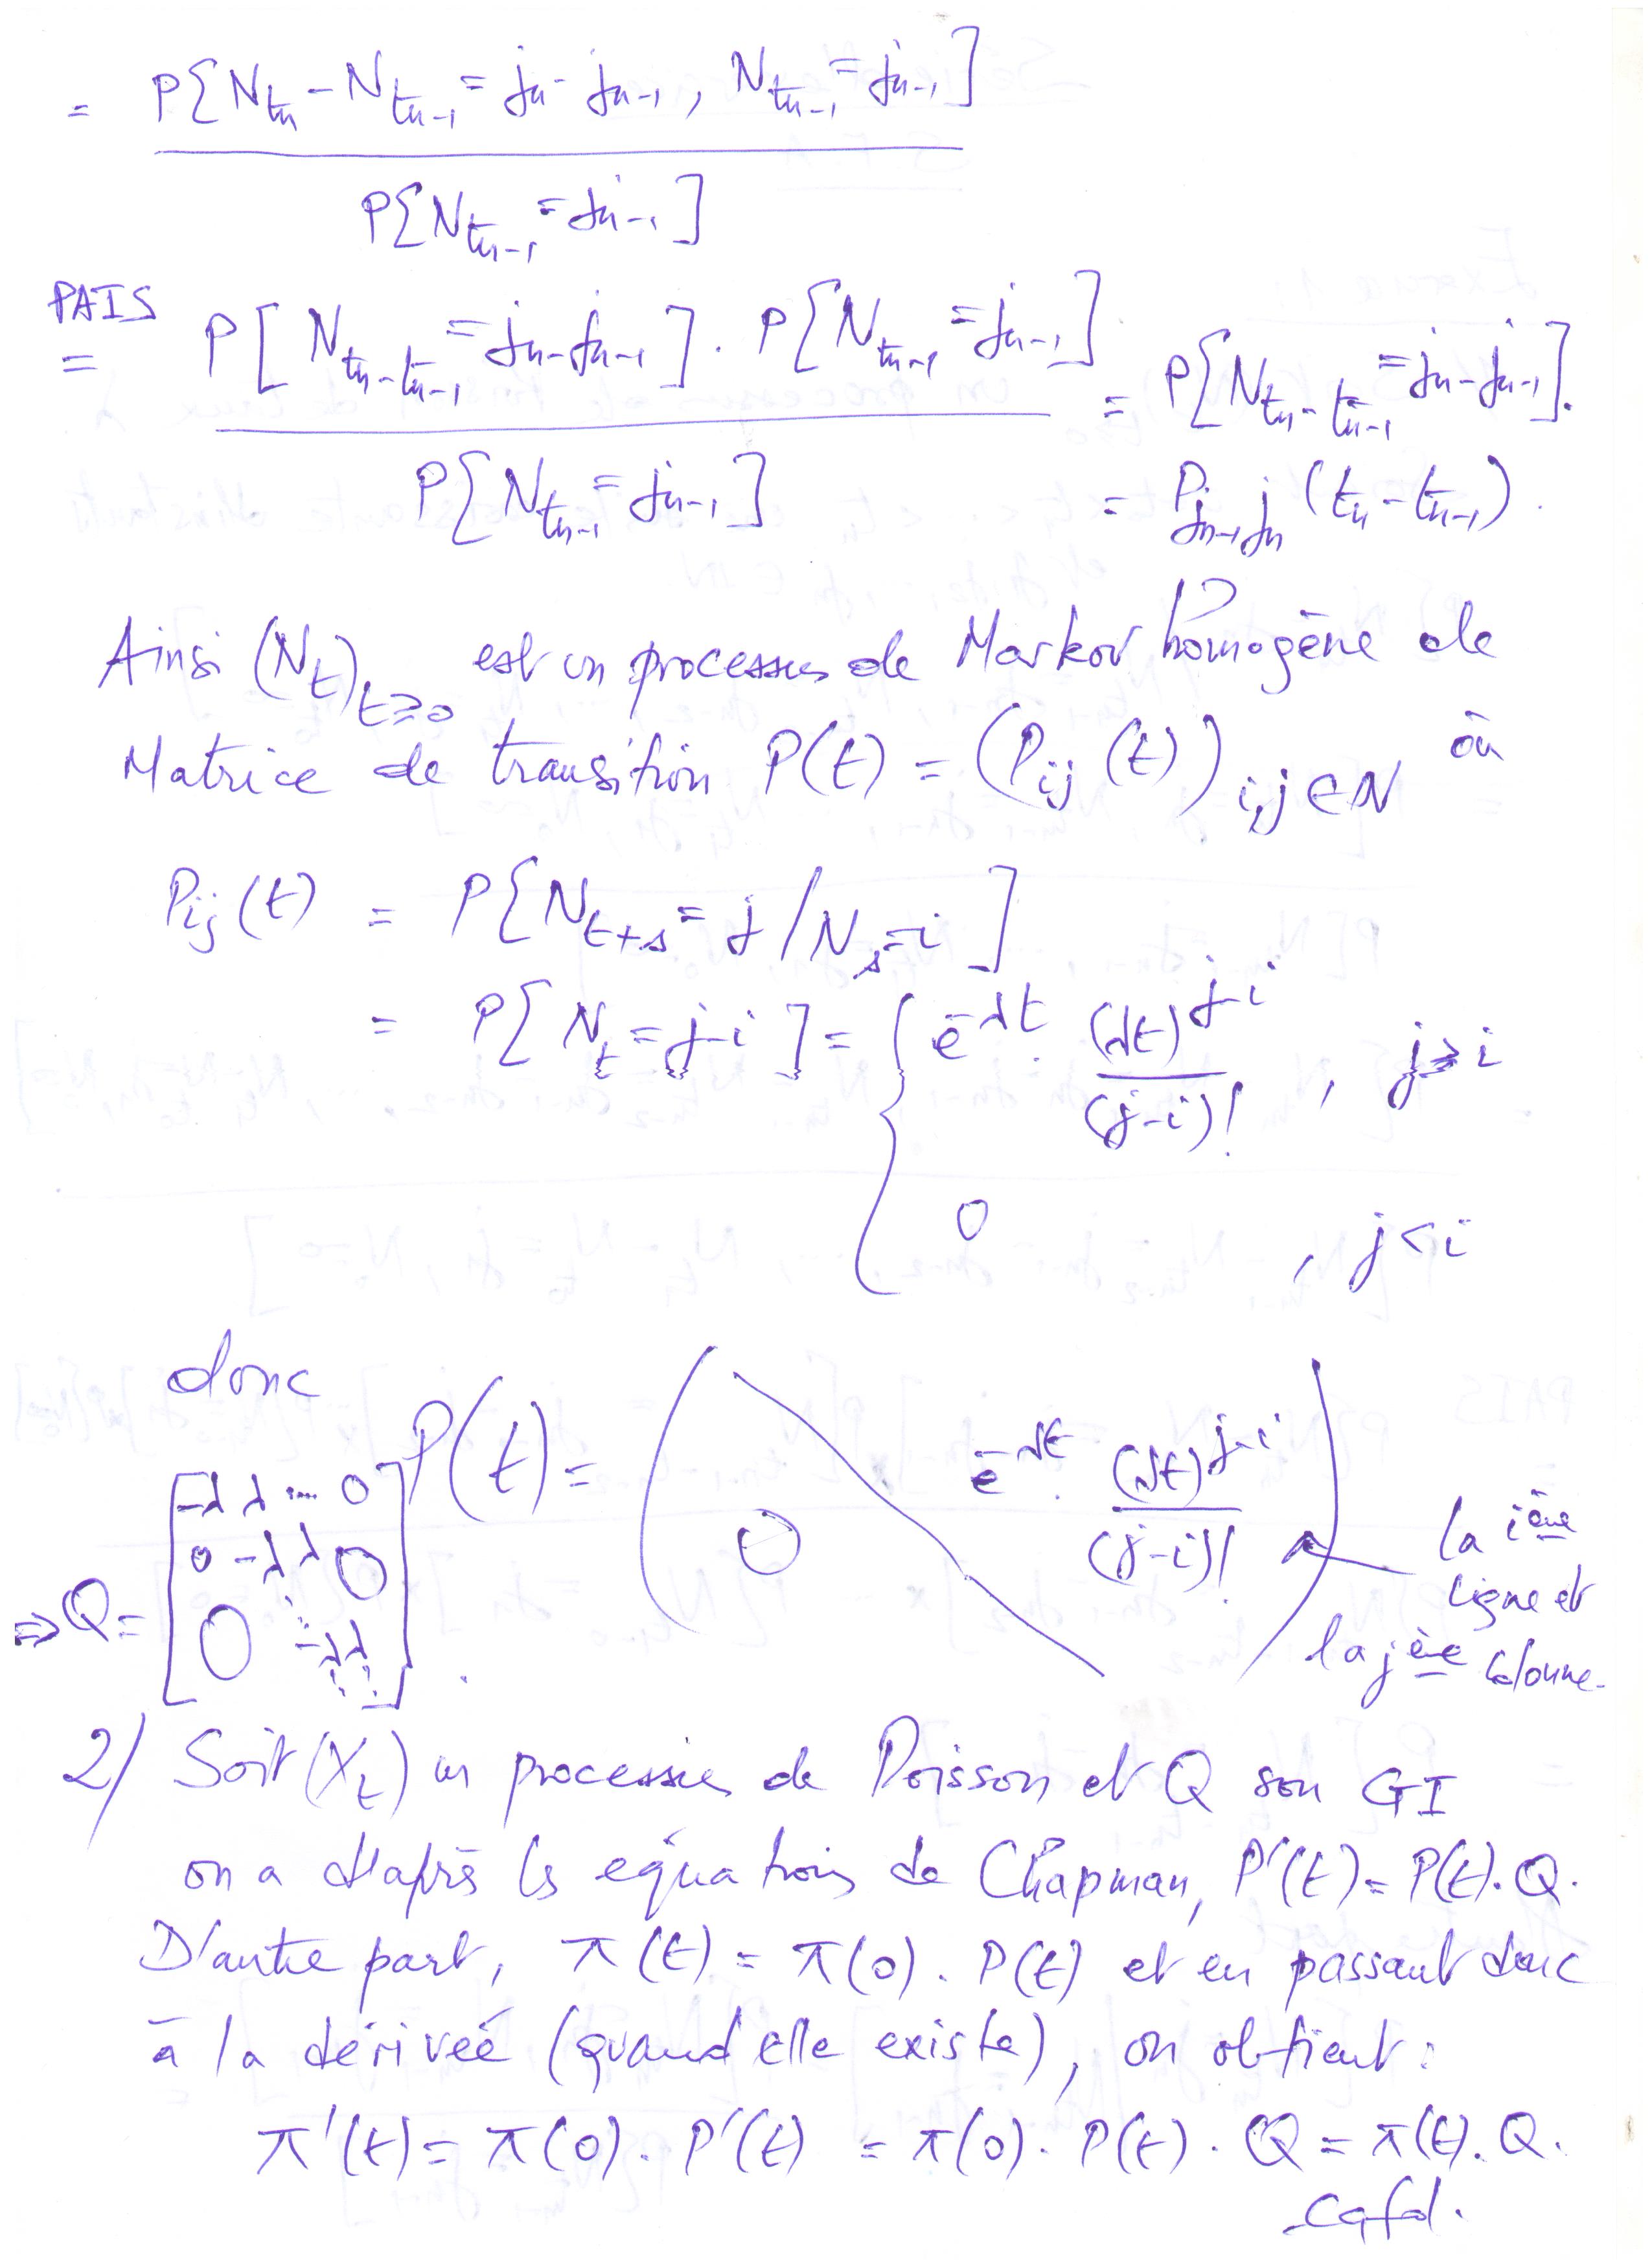 = P[N_{t_n} - N_{t_{n-1}} = j_n - j_{n-1}, N_{t_{n-1}} = j_{n-1}]
P[N_{t_{n-1}} = j_{n-1}]
PAIS
= P[N_{t_n - t_{n-1}} = j_n - j_{n-1}] . P[N_{t_{n-1}} = j_{n-1}] = P[N_{t_n - t_{n-1}} = j_n - j_{n-1}].
P[N_{t_{n-1}} = j_{n-1}] = P_{j_{n-1} j_n}(t_n - t_{n-1}).
Ainsi (N_t)_{t≥0} est un processus de Markov homogène de
Matrice de transition P(t) = (P_{ij}(t))_{i,j∈N} où
P_{ij}(t) = P[N_{t+s} = j / N_s = i]
= P[N_t = j-i] = { e^{-λt} . (λt)^{j-i} / (j-i)! , j ≥ i
0 , j < i
donc
P(t) = ( 0 e^{-λt} . (λt)^{j-i} / (j-i)! )
la ième
ligne et
la jème colonne.
⇒ Q = [ -λ λ .... 0
0 -λ λ 0
0 -λ λ ] .
2/ Soit (X_t) un processus de Poisson et Q son GI
on a d'après les équations de Chapman, P'(t) = P(t).Q.
D'autre part, π(t) = π(0). P(t) et en passant donc
à la dérivée (quand elle existe), on obtient :
π'(t) = π(0). P'(t) = π(0). P(t). Q = π(t). Q.
cqfd.